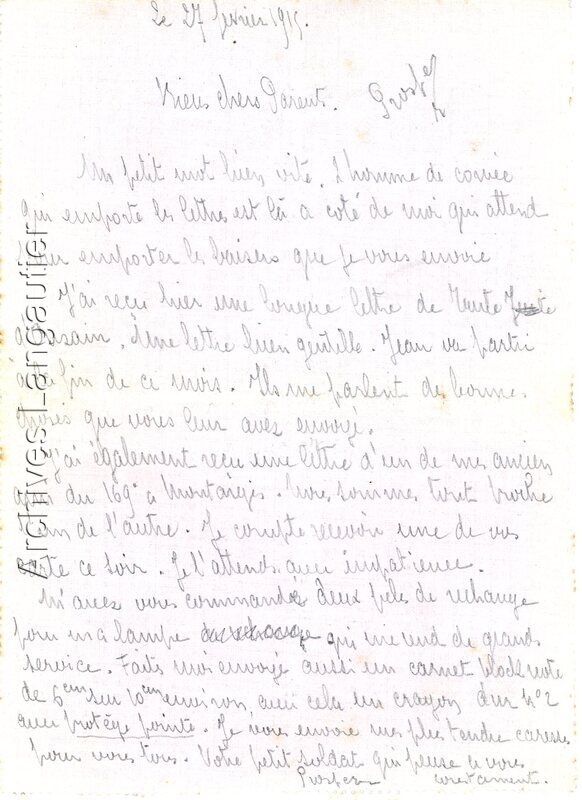 Le 27 février 1915.
Vieux chers Parents. Prosper
Un petit mot bien vite. L'homme de corvée
qui emporte les lettres est là a coté de moi qui attend
pour emporter les baisers que je vous envoie
J'ai reçu hier une longue lettre de Tante
Une lettre bien gentille. Jean va partir
à la fin de ce mois. Ils me parlent de bonne
choses que vous leur avez envoyé.
J'ai également reçu une lettre d'un de mes anciens
du 169e a Montargis. Nous sommes tout proche
l'un de l'autre. Je compte recevoir une de vos
carte ce soir. Je l'attends avec impatience.
M'avez vous commandé deux piles de rechange
pour ma lampe qui me rend de grands
service. Faits moi envoyé aussi un carnet block note
de 6cm sur 10cm environ, avec cela un crayon dur n°2
avec protège pointe. Je vous envoie mes plus tendre caresses
pour vous tous. Votre petit soldat qui pense a vous
Prosper
Archives Langautier